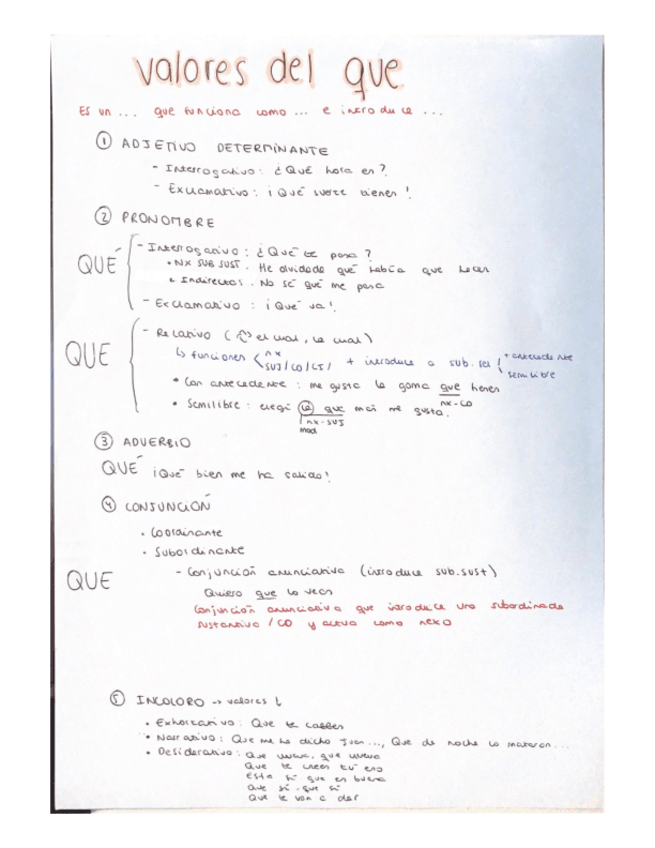 valores del que
Es un ... que funciona como ... e introduce ...
① ADJETIVO DETERMINANTE
- Interrogativo: ¿Qué hora es?
- Exclamativo: ¡Qué suerte tienes!
② PRONOMBRE
QUÉ
- Interrogativo: ¿Qué te pasa?
• NX SUB SUST. He olvidado qué había que hacer
• Indirectas. No sé qué me pasa
- Exclamativo: ¡Qué va!
QUE
- Relativo (el cual, la cual)
↳ funciones < nx SUJ/CO/CI/ + introduce a sub. rel / + antecedente
\ semilibre
• Con antecedente: me gusta la goma que tienes
nx-CO
• Semilibre: elegí la que más me gusta.
nx-SUJ
mod
③ ADVERBIO
QUÉ ¡Qué bien me ha salido!
④ CONJUNCIÓN
• Coordinante
• Subordinante
QUE
- Conjunción anunciativa (introduce sub.sust)
Quiero que lo vean
Conjunción anunciativa que introduce una subordinada
sustantiva / CO y actua como nexo
⑤ INCOLORO → valores ↓
• Exhortativo: Que te calles
• Narrativo: Que me ha dicho Juan..., Que de noche lo mataron...
• Desiderativo: Que vuelva, que vuelva
Que te crees tú eso
Esta sí que es buena
Que sí, que sí
Que te van a dar